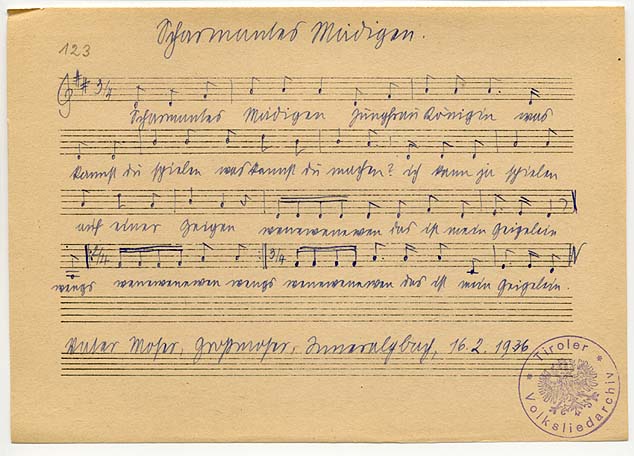 Scharmantes Mädigen.
123
3/4
Scharmantes Mädigen Jungfrau Königin was
kannst du spielen was kannst du machen? ich kann ja spielen
auf einer Geigen wenewenewen das ist mein Geigelein
2/4 3/4
wengs wenewenewen wengs wenewenewen das ist mein Geigelein.
Vater Moser, Großmoser, Inneralpbach, 16.2.1936
* Tiroler *
Volksliedarchiv